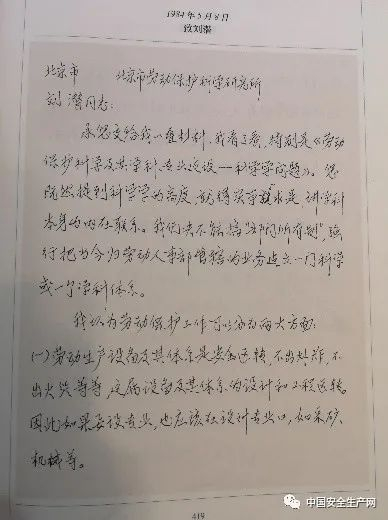 1984年5月8日
致刘潜
北京市 北京市劳动保护科学研究所
刘潜同志:
承您交给我一堆材料,我看了看,特别是《劳动
保护科学及其学科、专业建设—科学学问题》。您
既然提到科学学的高度,就得实事求是,讲学科
本身的内在联系。我们决不能搞“部门所有制”,强
行把当今归劳动人事部管辖的业务建立一门科学
或一个学科体系。
我认为劳动保护工作可以分为两大方面:
(一)劳动生产设备及其体系是安全运转,不出爆炸,不
出火灾等等,这属设备及其体系的设计和工程运转。
因此如果要设专业,也应该在设计专业口,如采矿、
机械等。
419
中国安全生产网